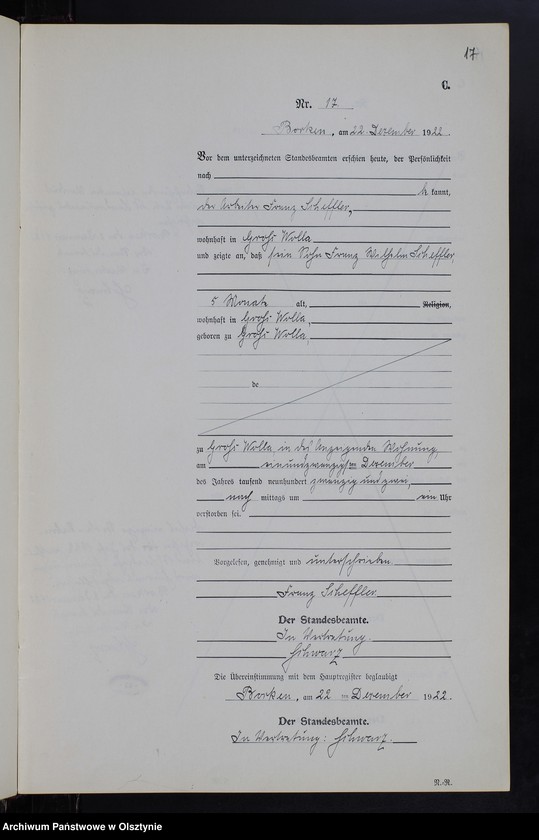 17
C.
Nr. 17
Borken, am 22. Dezember 1922.
Vor dem unterzeichneten Standesbeamten erschien heute, der Persönlichkeit
nach
be kannt,
der Arbeiter Franz Scheffler,
wohnhaft in Groß Wolla
und zeigte an, daß sein Sohn Franz Wilhelm Scheffler
5 Monate alt, Religion,
wohnhaft in Groß Wolla,
geboren zu Groß Wolla,
de
zu Groß Wolla, in des Anzeigenden Wohnung,
am einundzwanzigsten Dezember
des Jahres tausend neunhundert zwanzig und zwei,
nach mittags um ein Uhr
verstorben sei.
Vorgelesen, genehmigt und unterschrieben
Franz Scheffler
Der Standesbeamte.
In Vertretung.
Schwarz
Die Übereinstimmung mit dem Hauptregister beglaubigt
Borken, am 22 ten Dezember 1922.
Der Standesbeamte.
In Vertretung: Schwarz.
N.-R.
Archiwum Państwowe w Olsztynie